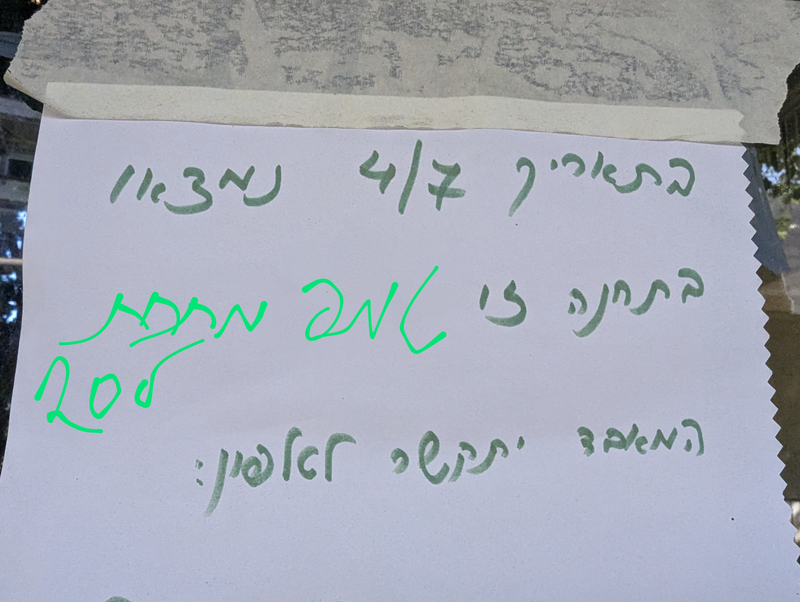 בתאריך 4/7 נמצאו
בתחנה זו טמפ מתחת
ל20
המאבד יתקשר לטלפון: